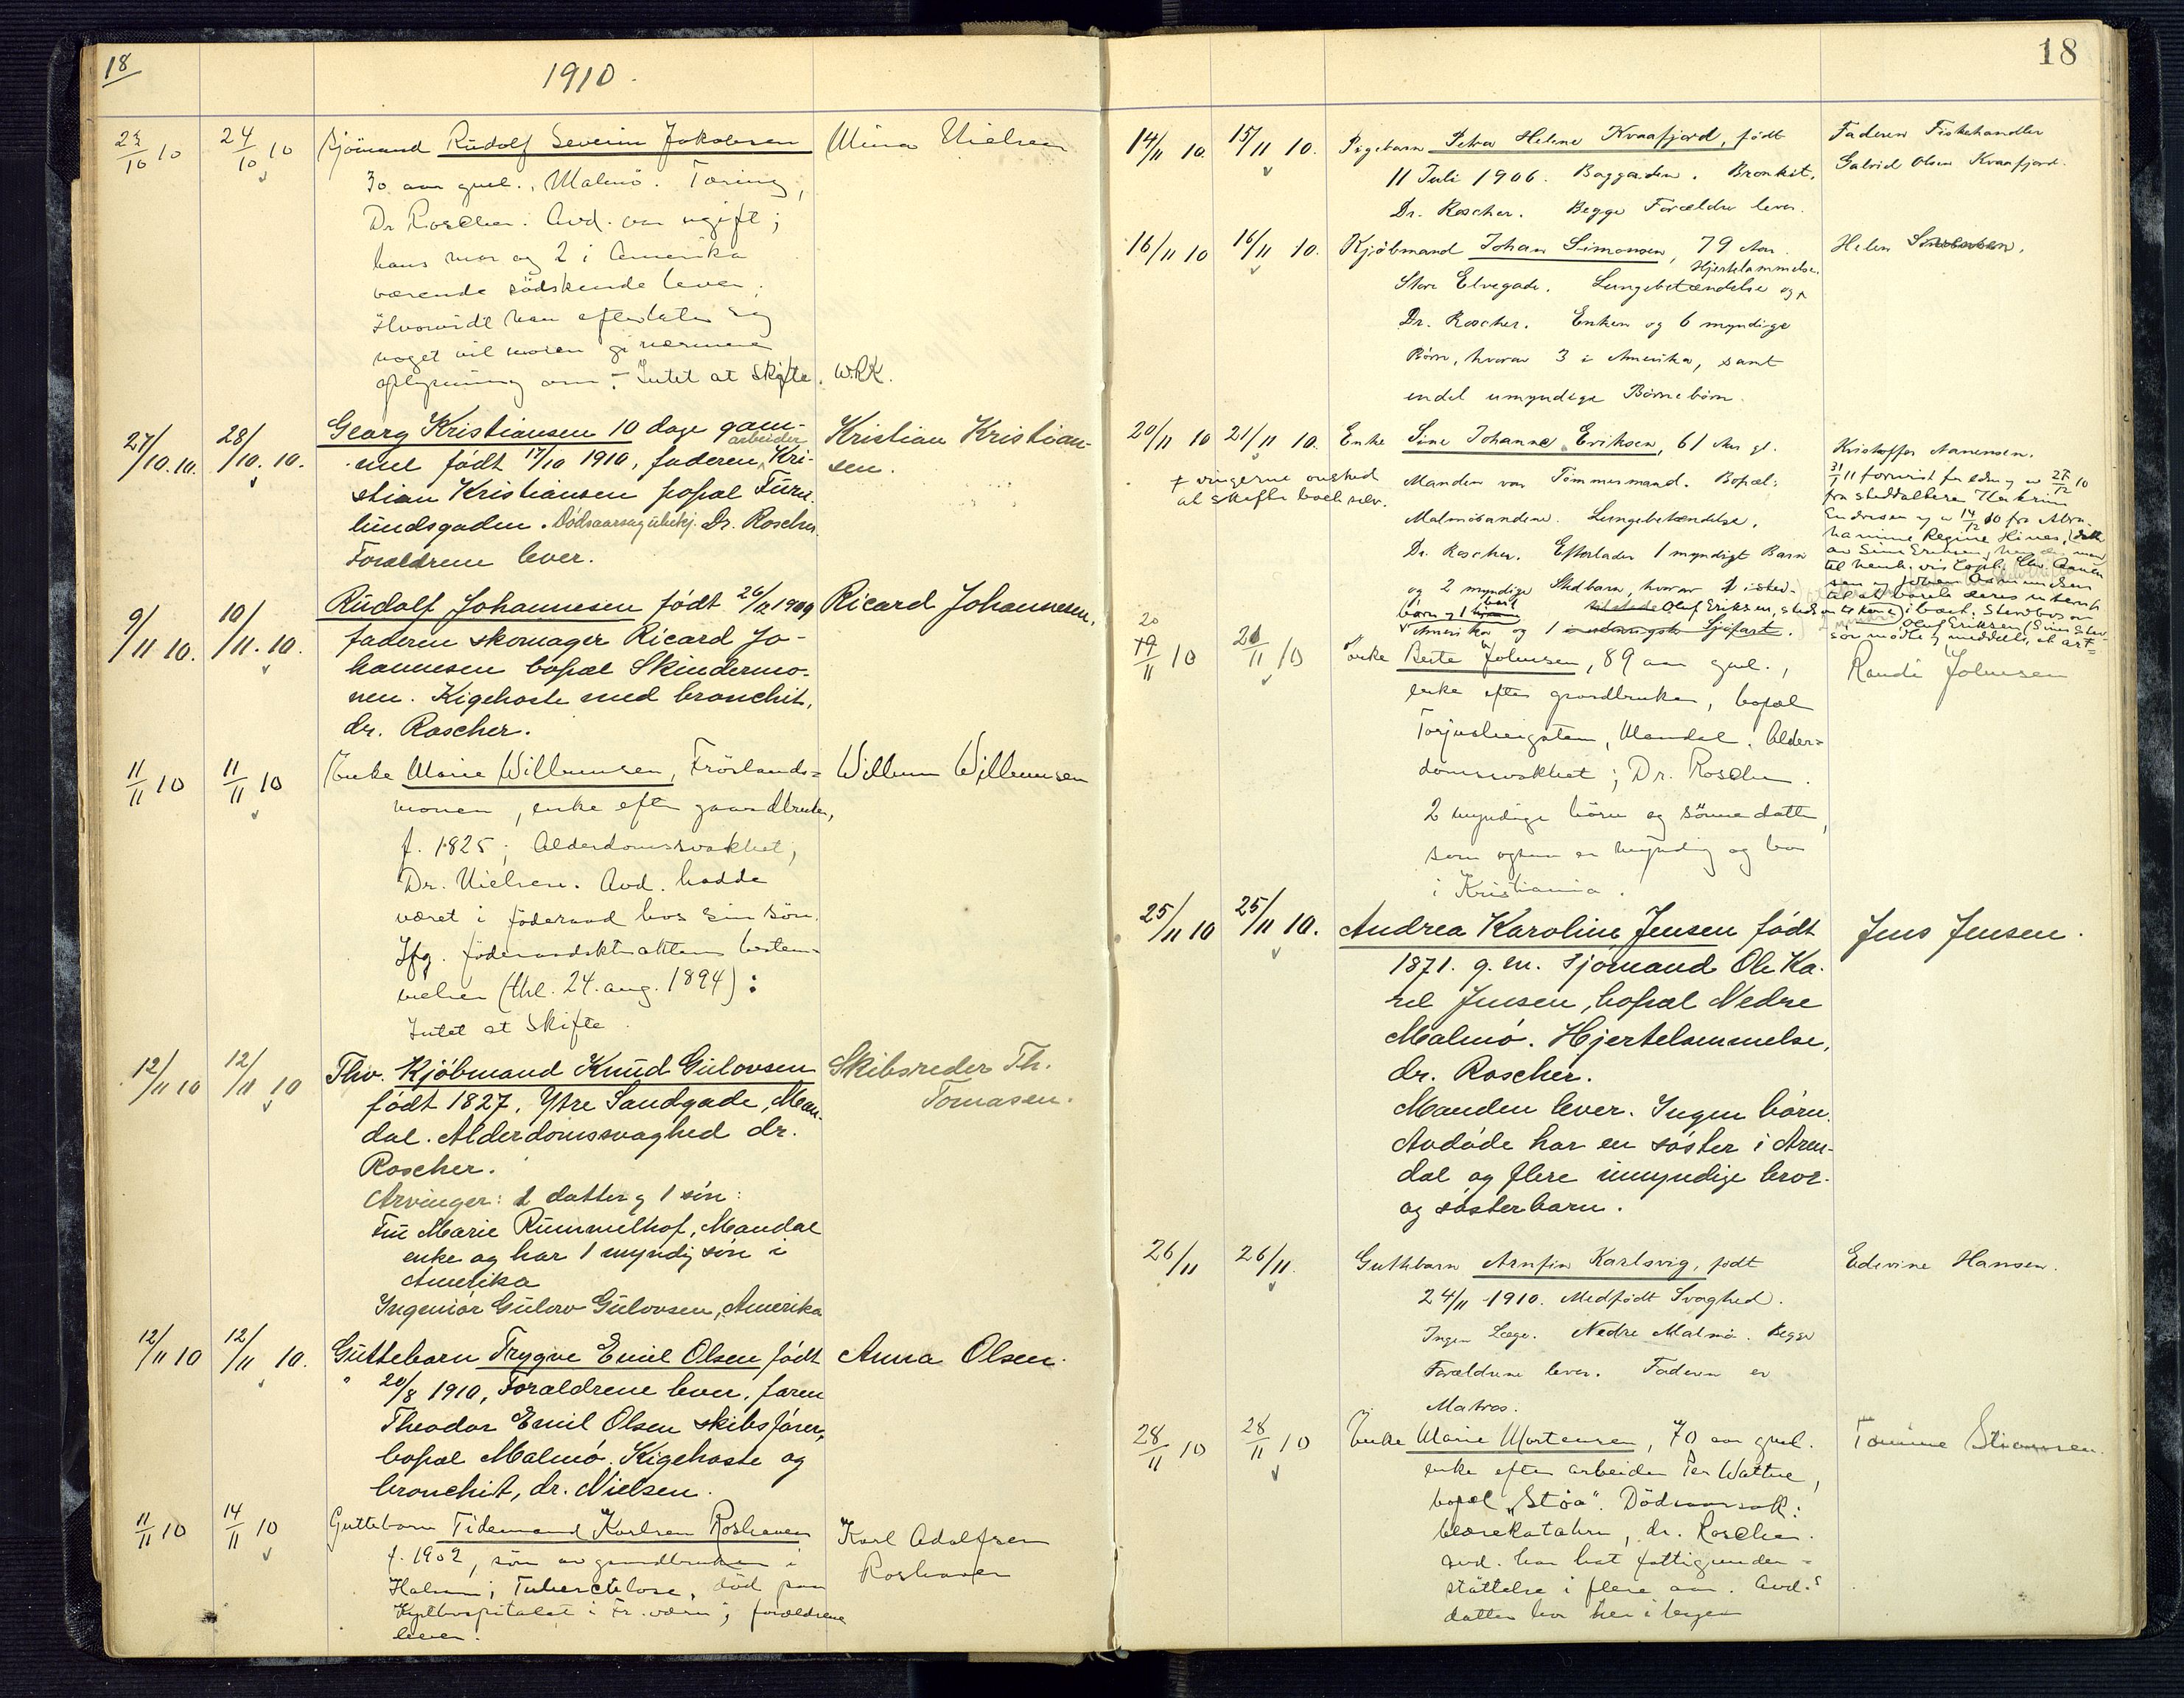 18
1910.
23/10 10 24/10 10 Sjömand Rudolf Severin Jakobsen Mina Nielsen
30 aar gml., Malmö. Tæring,
Dr Roscher. Avd. var ugift;
hans mor og 2 i Amerika
værende södskende lever.
Hvorvidt han efterlater sig
noget vil moren gi nærmere
oplysning om. – Intet at skifte. W.R.K.
27/10. 10. 28/10. 10. Georg Kristiansen 10 dage gam- Kristian Kristian-
mel født 17/10 1910, faderen arbeider Kri- sen.
stian Kristiansen bopæl Furu-
lundsgaden. Dødsaarsag ubekj. Dr. Roscher.
Forældrene lever.
9/11 10. 10/11. 10. Rudolf Johannesen født 26/12 1909 Ricard Johannesen.
faderen skomager Ricard Jo-
hannesen bopæl Skindermo-
nen. Kigehoste med bronchit,
dr. Roscher.
11/11 10 11/11 10 Enke Marie Willumsen, Frøslands- Willum Willumsen
monen, enke efter gaardbruker,
f. 1825; Alderdomssvakhet;
Dr. Nielsen. Avd. hadde
været i föderaad hos sin sön.
Ifg. föderaadskontraktens bestem-
melser (thl. 24. aug. 1894):
Intet at skifte.
12/11 10 12/11 10 Fhv. Kjøbmand Knud Gulovsen Skibsreder Th.
født 1827, Ytre Sandgade, Man- Tomasen.
dal. Alderdomssvaghed dr.
Roscher.
Arvinger: 1 datter og 1 søn:
Fru Marie Rummelhof, Mandal
enke og har 1 myndig søn i
Amerika
Ingeniør Gulow Gulovsen, Amerika
12/11 10 12/11 10. Guttebarn Trygve Emil Olsen født Anna Olsen.
20/8 1910, Forældrene lever, faren
Theodor Emil Olsen skibsfører,
bopæl Malmö. Kigehoste og
bronchit, dr. Nielsen.
11/11 10 14/11 10 Guttebarn Tidemand Karlsen Roshaven Karl Adolfsen
f. 1902, sön av gaardbruker i Roshaven
Halsaa; Tuberculose, död paa
Kysthospitalet i Fr.værn; forældrene
lever.
18
14/11 10. 15/11 10. Pigebarn Petra Helene Kvaafjord, født Faderen Fiskehandler
11 Juli 1906. Baggaden. Bronkit. Gabriel Olsen Kvaafjord.
Dr. Roscher. Begge Forældre lever.
16/11 10 16/11 10. Kjøbmand Johan Simonsen, 79 Aar. Helen Simonsen.
Store Elvegade. Lungebetændelse og Hjertelammelse.
Dr. Roscher. Enken og 6 myndige
Børn, hvorav 3 i Amerika, samt
endel umyndige Børnebørn.
20/11 10 21/11 10. Enke Sine Johanne Eriksen, 61 Aar gl. Kristoffer Aanensen.
Manden var Tømmermand. Bopæl:
Malmösanden. Lungebetændelse.
Dr. Roscher. Efterlader 1 myndigt Barn
og 2 myndige Stedbørn, hvorav 1 sted-
barn og 1 barn
Amerika og 1 i udenrigsk Sjøfart.
Olaf Eriksen
20/11 10 21/11 10 Enke Berte Johnsen, 89 aar gml., Randi Johnsen
enke efter gaardbruker, bopæl
Torjusheigaten, Mandal. Alder-
domssvakhet; Dr. Roscher.
2 myndige börn og sönnedatter,
som ogsaa er myndig og bor
i Kristiania.
25/11 10 25/11 10. Andrea Karoline Jensen født Jens Jensen.
1871. g. m. sjømand Ole Ka-
rel Jensen, bopæl Nedre
Malmø. Hjertelammelse,
dr. Roscher.
Manden lever. Ingen børn.
Avdøde har en søster i Aren-
dal og flere umyndige bror-
og søsterbarn.
26/11 26/11. Guttebarn Arnfin Karlsvig, født Edvine Hansen.
24/11 1910. Medfødt Svaghed.
Ingen Læge. Nedre Malmø. Begge
Forældrene lever. Faderen er
Matros.
28/11 10 28/11 10 Enke Marie Mortensen, 70 aar gml.
enke efter arbeider Per Wattne,
bopæl "Støa". Dödsaarsak:
blærekatahr, dr. Roscher.
Avd. har hat fattigunder-
støttelse i flere aar. Avd.s
datter bor her i byen